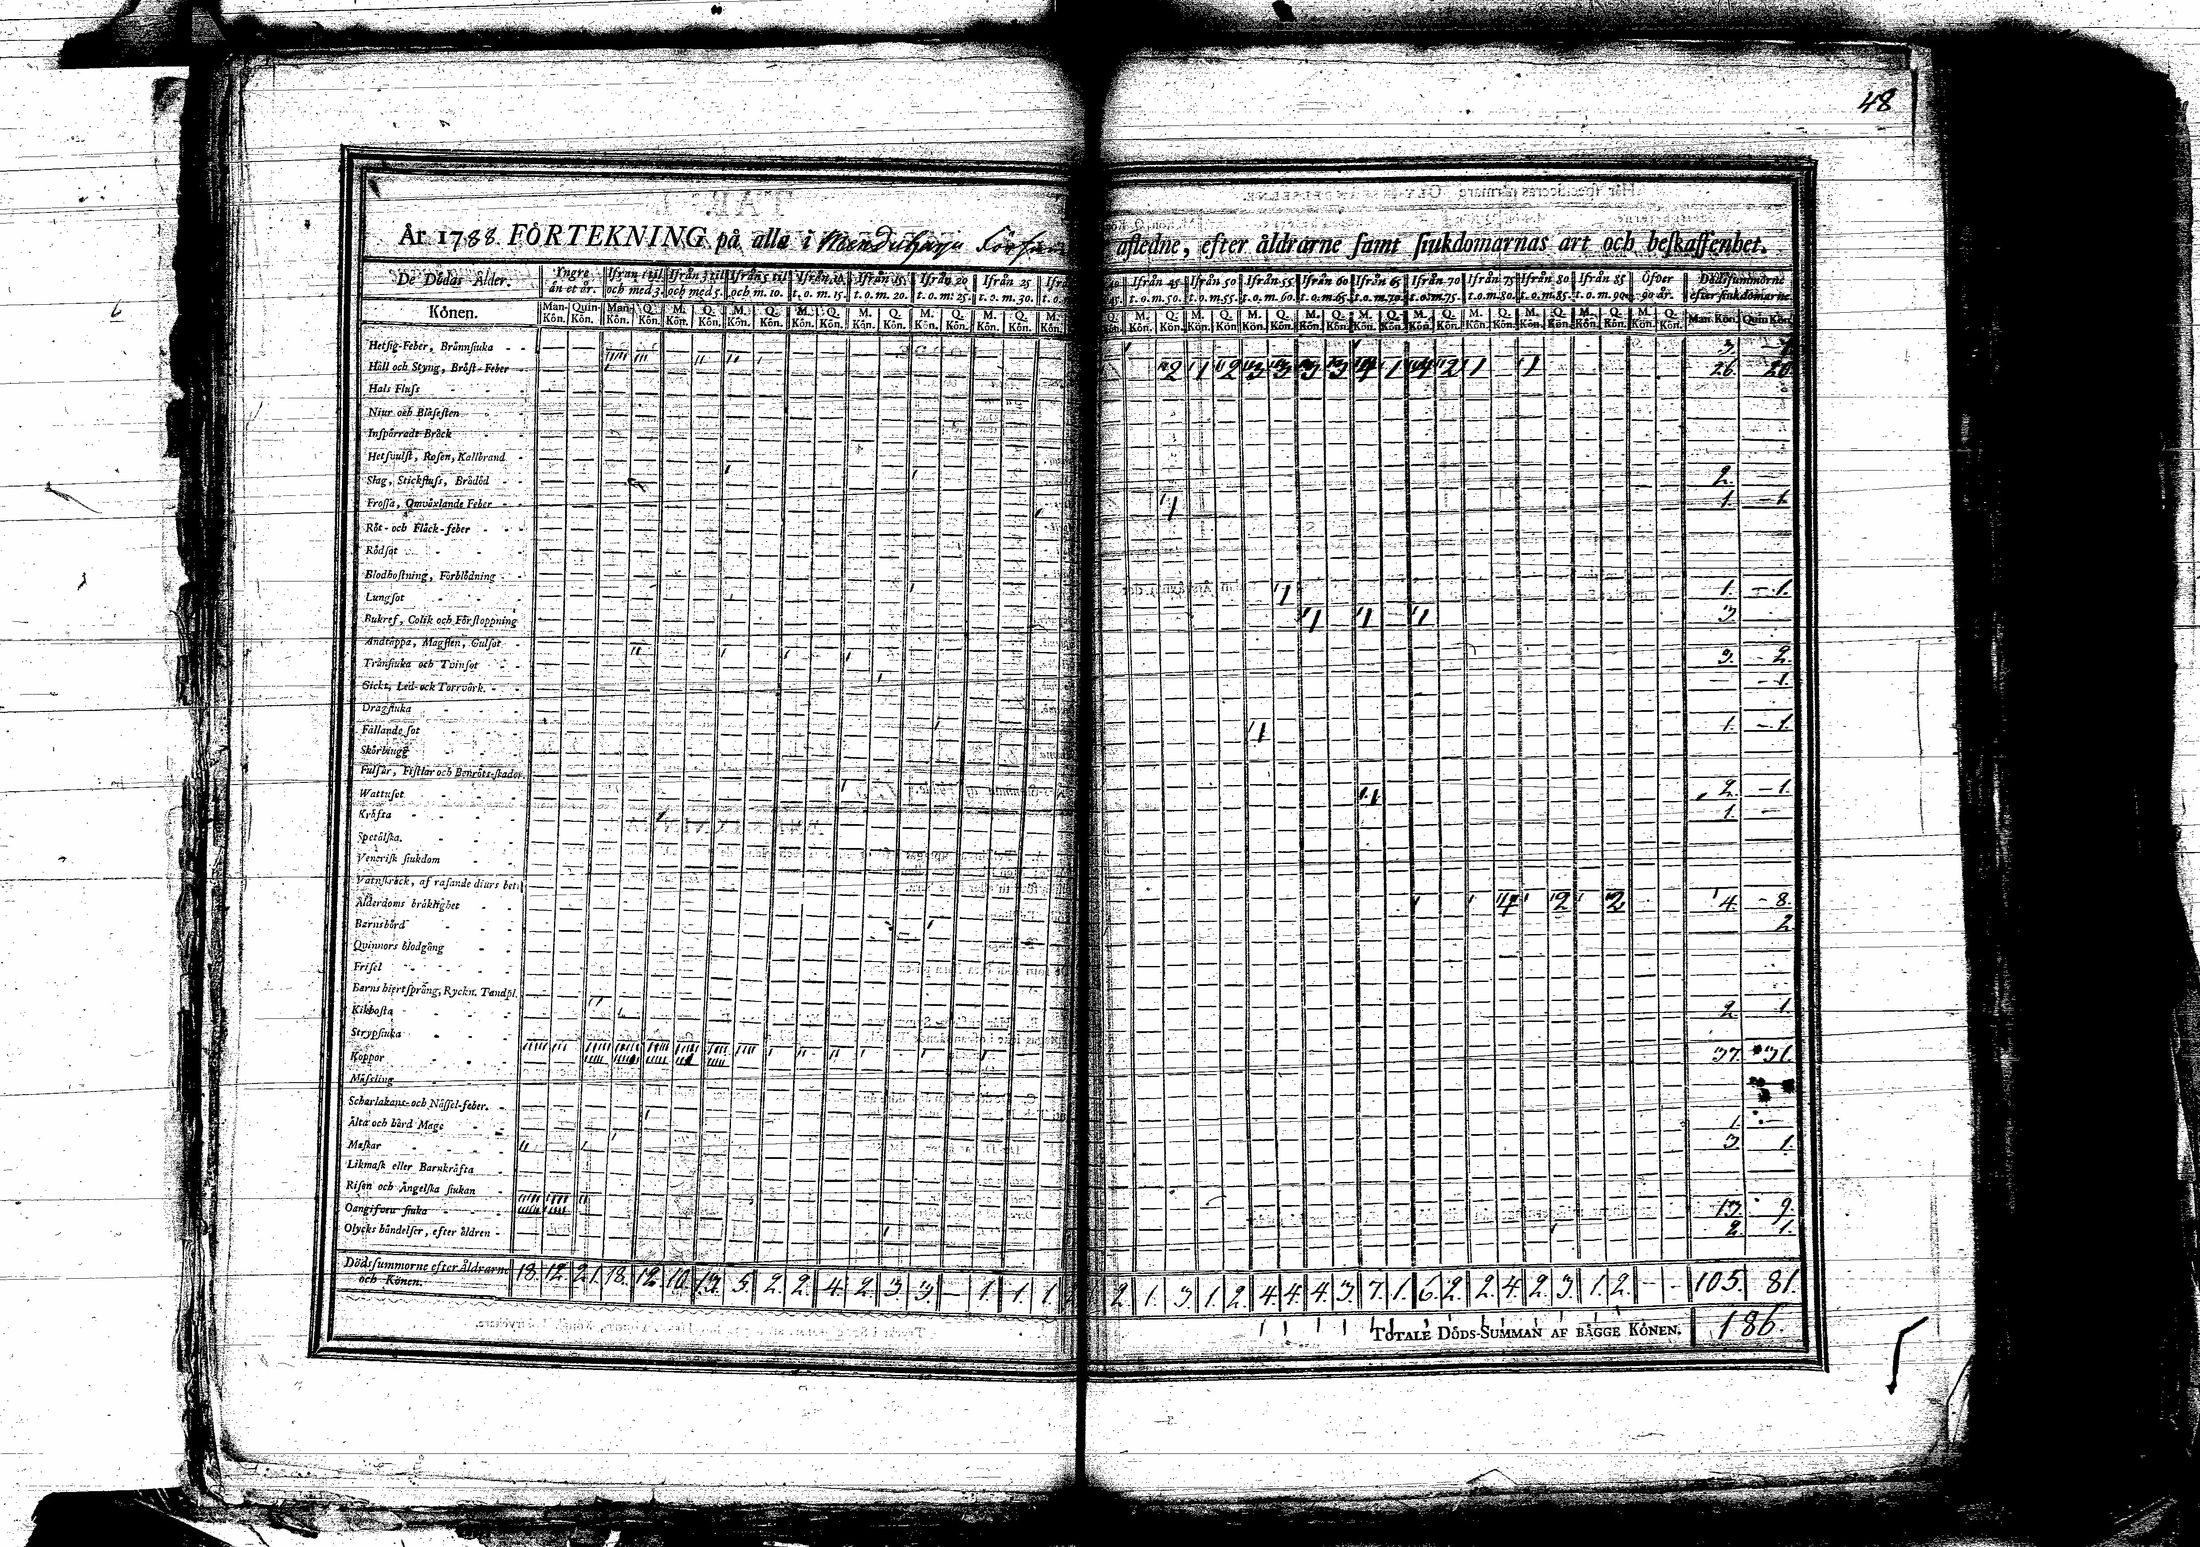 48
År 1788. FÖRTEKNING på alla i afledne, efter åldrarne samt siukdomarnas art och beskaffenhet.
De Dödas Ålder. Yngre än et år. Ifrån 1 til och med 3. Ifrån 3 til och med 5. Ifrån 5 til och m. 10. Ifrån 10 t. o. m. 15. Ifrån 15 t. o. m. 20. Ifrån 20 t. o. m. 25. Ifrån 25 t. o. m. 30. Ifrån 45 t. o. m. 50. Ifrån 50 t. o. m. 55. Ifrån 55 t. o. m. 60. Ifrån 60 t. o. m. 65. Ifrån 65 t. o. m. 70. Ifrån 70 t. o. m. 75. Ifrån 75 t. o. m. 80. Ifrån 80 t. o. m. 85. Ifrån 85 t. o. m. 90. Öfver 90 år. Dödssummorne efter siukdomarne.
Könen. Man-Kön. Quin-Kön. Man-Kön. Q. Kön. M. Kön. Q. Kön. M. Kön. Q. Kön. M. Kön. Q. Kön. M. Kön. Q. Kön. M. Kön. Q. Kön. M. Kön. Q. Kön. Man Kön. Quin Kön.
Hetsig-Feber, Brännsiuka 3. 1
Håll och Styng, Bröst-Feber 2 1 2 3 3 3 3 4 1 4 2 1 1 26. 20.
Hals Fluss
Niur och Blåsesten
Inspärradt Bråck
Hetsvulst, Rosen, Kallbrand
Slag, Stickfluss, Brådöd 2.
Frossa, Omväxlande Feber 1 1. 1.
Röt- och Fläck-feber
Rödsot
Blodhostning, Förblödning
Lungsot 1 1. 1.
Bukref, Colik och Förstoppning 1 1 1 3.
Andtäppa, Magsten, Gulsot
Tränsiuka och Tvinsot 3. 2.
Gickt, Led- och Torrvärk. 1.
Dragsiuka
Fallande sot 1 1. 1.
Skörbiugg
Fulsår, Fistlar och Benröts-skador
Wattusot 1 2. 1.
Kräfta 1.
Spetälska.
Venerisk siukdom
Vatnskräck, af rasande diurs bett
Ålderdoms bräklighet 4 2 2 4. 8.
Barnsbörd 2
Quinnors blodgång
Frisel
Barns hiertsprång, Ryckn. Tandpl.
Kikhosta 2. 1.
Strypsiuka
Koppor 37. 31.
Mässling
Scharlakans- och Nässel-feber.
Älta och hård Mage 1.
Maskar 3 1.
Likmask eller Barnkräfta
Risen och Ängelska siukan
Oangifven siuka 13. 9.
Olycks händelser, efter åldren 2. 1.
Dödssummorne efter Åldrarne och Könen. 18. 12. 2. 1. 18. 12. 10. 13. 5. 2. 2. 4. 2. 3. 3. — 1. 1. 1. 2. 1. 3. 1. 2. 4. 4. 4. 3. 7. 1. 6. 2. 2. 4. 2. 3. 1. 2. — — 105. 81.
TOTALE DÖDS-SUMMAN AF BÄGGE KÖNEN. 186.